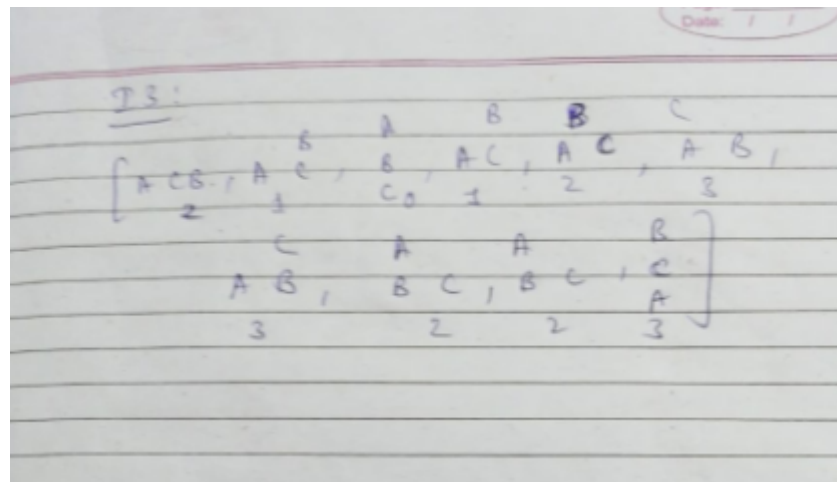 Date: / /
I3:
B A B B C
[A CB, A C, B, A C, A C, A B,
2 1 C0 1 2 3
C A A B
A B, B C, B C, C
A]
3 2 2 3